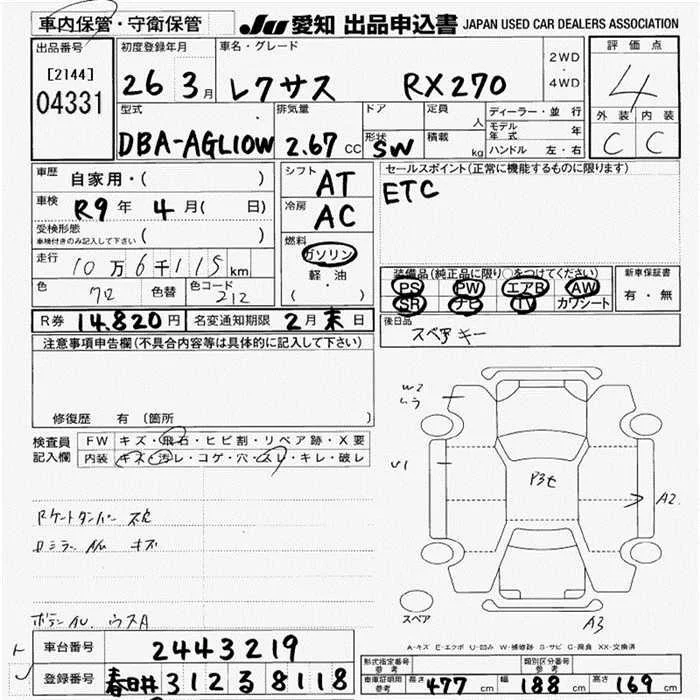 車内保管・守衛保管
JU 愛知 出品申込書 JAPAN USED CAR DEALERS ASSOCIATION
出品番号 初度登録年月 車名・グレード 評価点
[2144] 04331 26 3月 レクサス RX270 2WD・4WD 4
型式 排気量 ドア 定員 人 ディーラー・並行 外装 内装
DBA-AGL10W 2.67 CC 形状 SW 積載 kg モデル年式 年 ハンドル 左・右 C C
車歴 自家用・( ) シフト AT セールスポイント(正常に機能するものに限ります)
車検 R9年 4月( 日) 冷房 AC ETC
受検形態 ( )
車検付きのみ記入して下さい
燃料 ガソリン
軽・油
( )
走行 10万6千115km
装備品(純正品に限り○をつけてください) 新車保証書
PS PW エアB AW 有・無
SR ナビ TV カワシート
色 クロ 色替 色コード 212
後日品 スペアキー
R券 14.820円 名変通知期限 2月末日
注意事項申告欄(不具合内容等は具体的に記入して下さい)
修復歴 有(箇所 )
検査員記入欄 FW キズ・飛石・ヒビ割・リペア跡・X要
内装 キズ・汚レ・コゲ・穴・スレ・キレ・破レ
W2
U1
A2
A3
Rミラー AU キズ
スペア
A-キズ E-エクボ U-凹み W-補修跡 S-サビ C-腐食 XX-交換済
車台番号 2443219
登録番号 春日井 312 る 8118
形式指定番号 参考 類別区分番号 参考
車庫証明用参考 長さ 477cm 幅 188cm 高さ 169cm